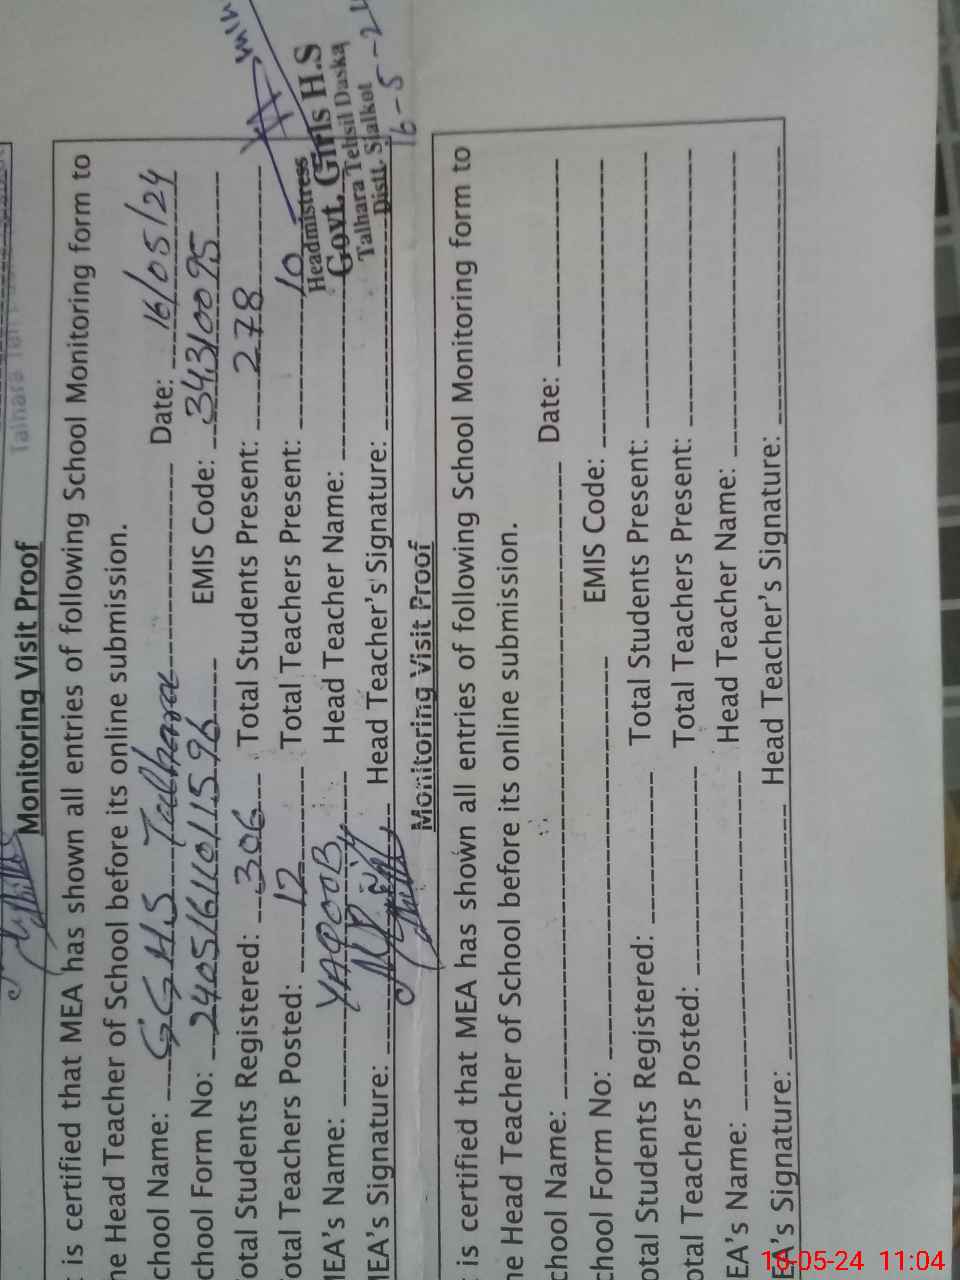 Monitoring Visit Proof
is certified that MEA has shown all entries of following School Monitoring form to
he Head Teacher of School before its online submission.
chool Name: G.G.H.S Talhara Date: 16/05/24
chool Form No: 24051611011596 EMIS Code: 34310095
otal Students Registered: 306 Total Students Present: 278
otal Teachers Posted: 12 Total Teachers Present: 10
MEA's Name: YAQOOB Head Teacher Name:
MEA's Signature: Head Teacher's Signature:
Headmistress
Govt. Girls H.S
Talhara Tehsil Daska
Distt. Sialkot
16-5-24
Monitoring Visit Proof
is certified that MEA has shown all entries of following School Monitoring form to
he Head Teacher of School before its online submission.
chool Name: Date:
chool Form No: EMIS Code:
otal Students Registered: Total Students Present:
otal Teachers Posted: Total Teachers Present:
EA's Name: Head Teacher Name:
EA's Signature: Head Teacher's Signature:
16-05-24 11:04